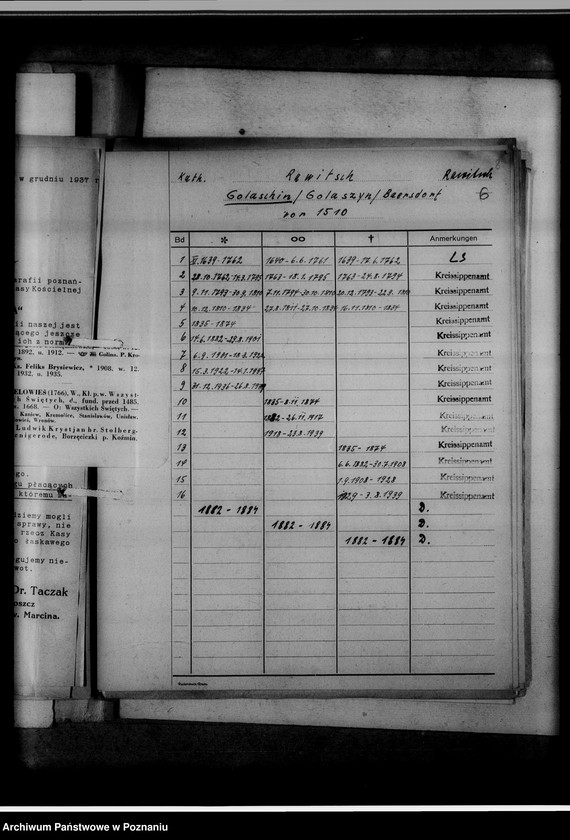 w grudniu 1937 r
arafii poznan-
asy Kościelnej
ii naszej jest
ącego jeszcze
ich z norm
1892, u. 1912. — Golina. P. Kro-
s. Feliks Brysiewicz, * 1908. w. 12.
1932. u. 1935.
ELOWIEŚ (1766), W., Kł. p. w. Wszyst-
h Świętych, d., fund. przed 1485.
. 1668. — O: Wszystkich Świętych. —
Ludwik Krystjan hr. Stolberg-
nigerode, Borzęciczki p. Koźmin.
go.
gu płacących
któremu
dziemy mogli
sprawy, nie
rzecz Kasy
o łaskawego
gujemy nie-
wot.
Dr. Taczak
oszcz
v. Marcina.
Kath. Rawitsch Rawitsch
Golaschin / Golaszyn / Baersdorf 6
von 1510
Bd * ∞ † Anmerkungen
1 1639-1762 1640-6.6.1761 1639-17.6.1762 LS
2 1763-18.1.1795 1763-24.8.1794 Kreissippenamt
3 Kreissippenamt
4 10.12.1810-1834 16.11.1810-1834 Kreissippenamt
5 1835-1874 Kreissippenamt
6 Kreissippenamt
7 Kreissippenamt
8 Kreissippenamt
9 Kreissippenamt
10 1835-8.11.1874 Kreissippenamt
11 1882-26.11.1917 Kreissippenamt
12 1918-28.8.1939 Kreissippenamt
13 1835-1874 Kreissippenamt
14 6.6.1882-30.7.1908 Kreissippenamt
15 1.9.1908-1928 Kreissippenamt
16 1929-3.8.1939 Kreissippenamt
1882-1884 D.
1882-1884 D.
1882-1884 D.
Archiwum Państwowe w Poznaniu